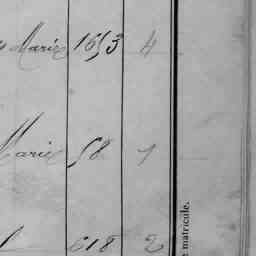 Marie 1653 4
Marie 58 1
218 2
matricule.